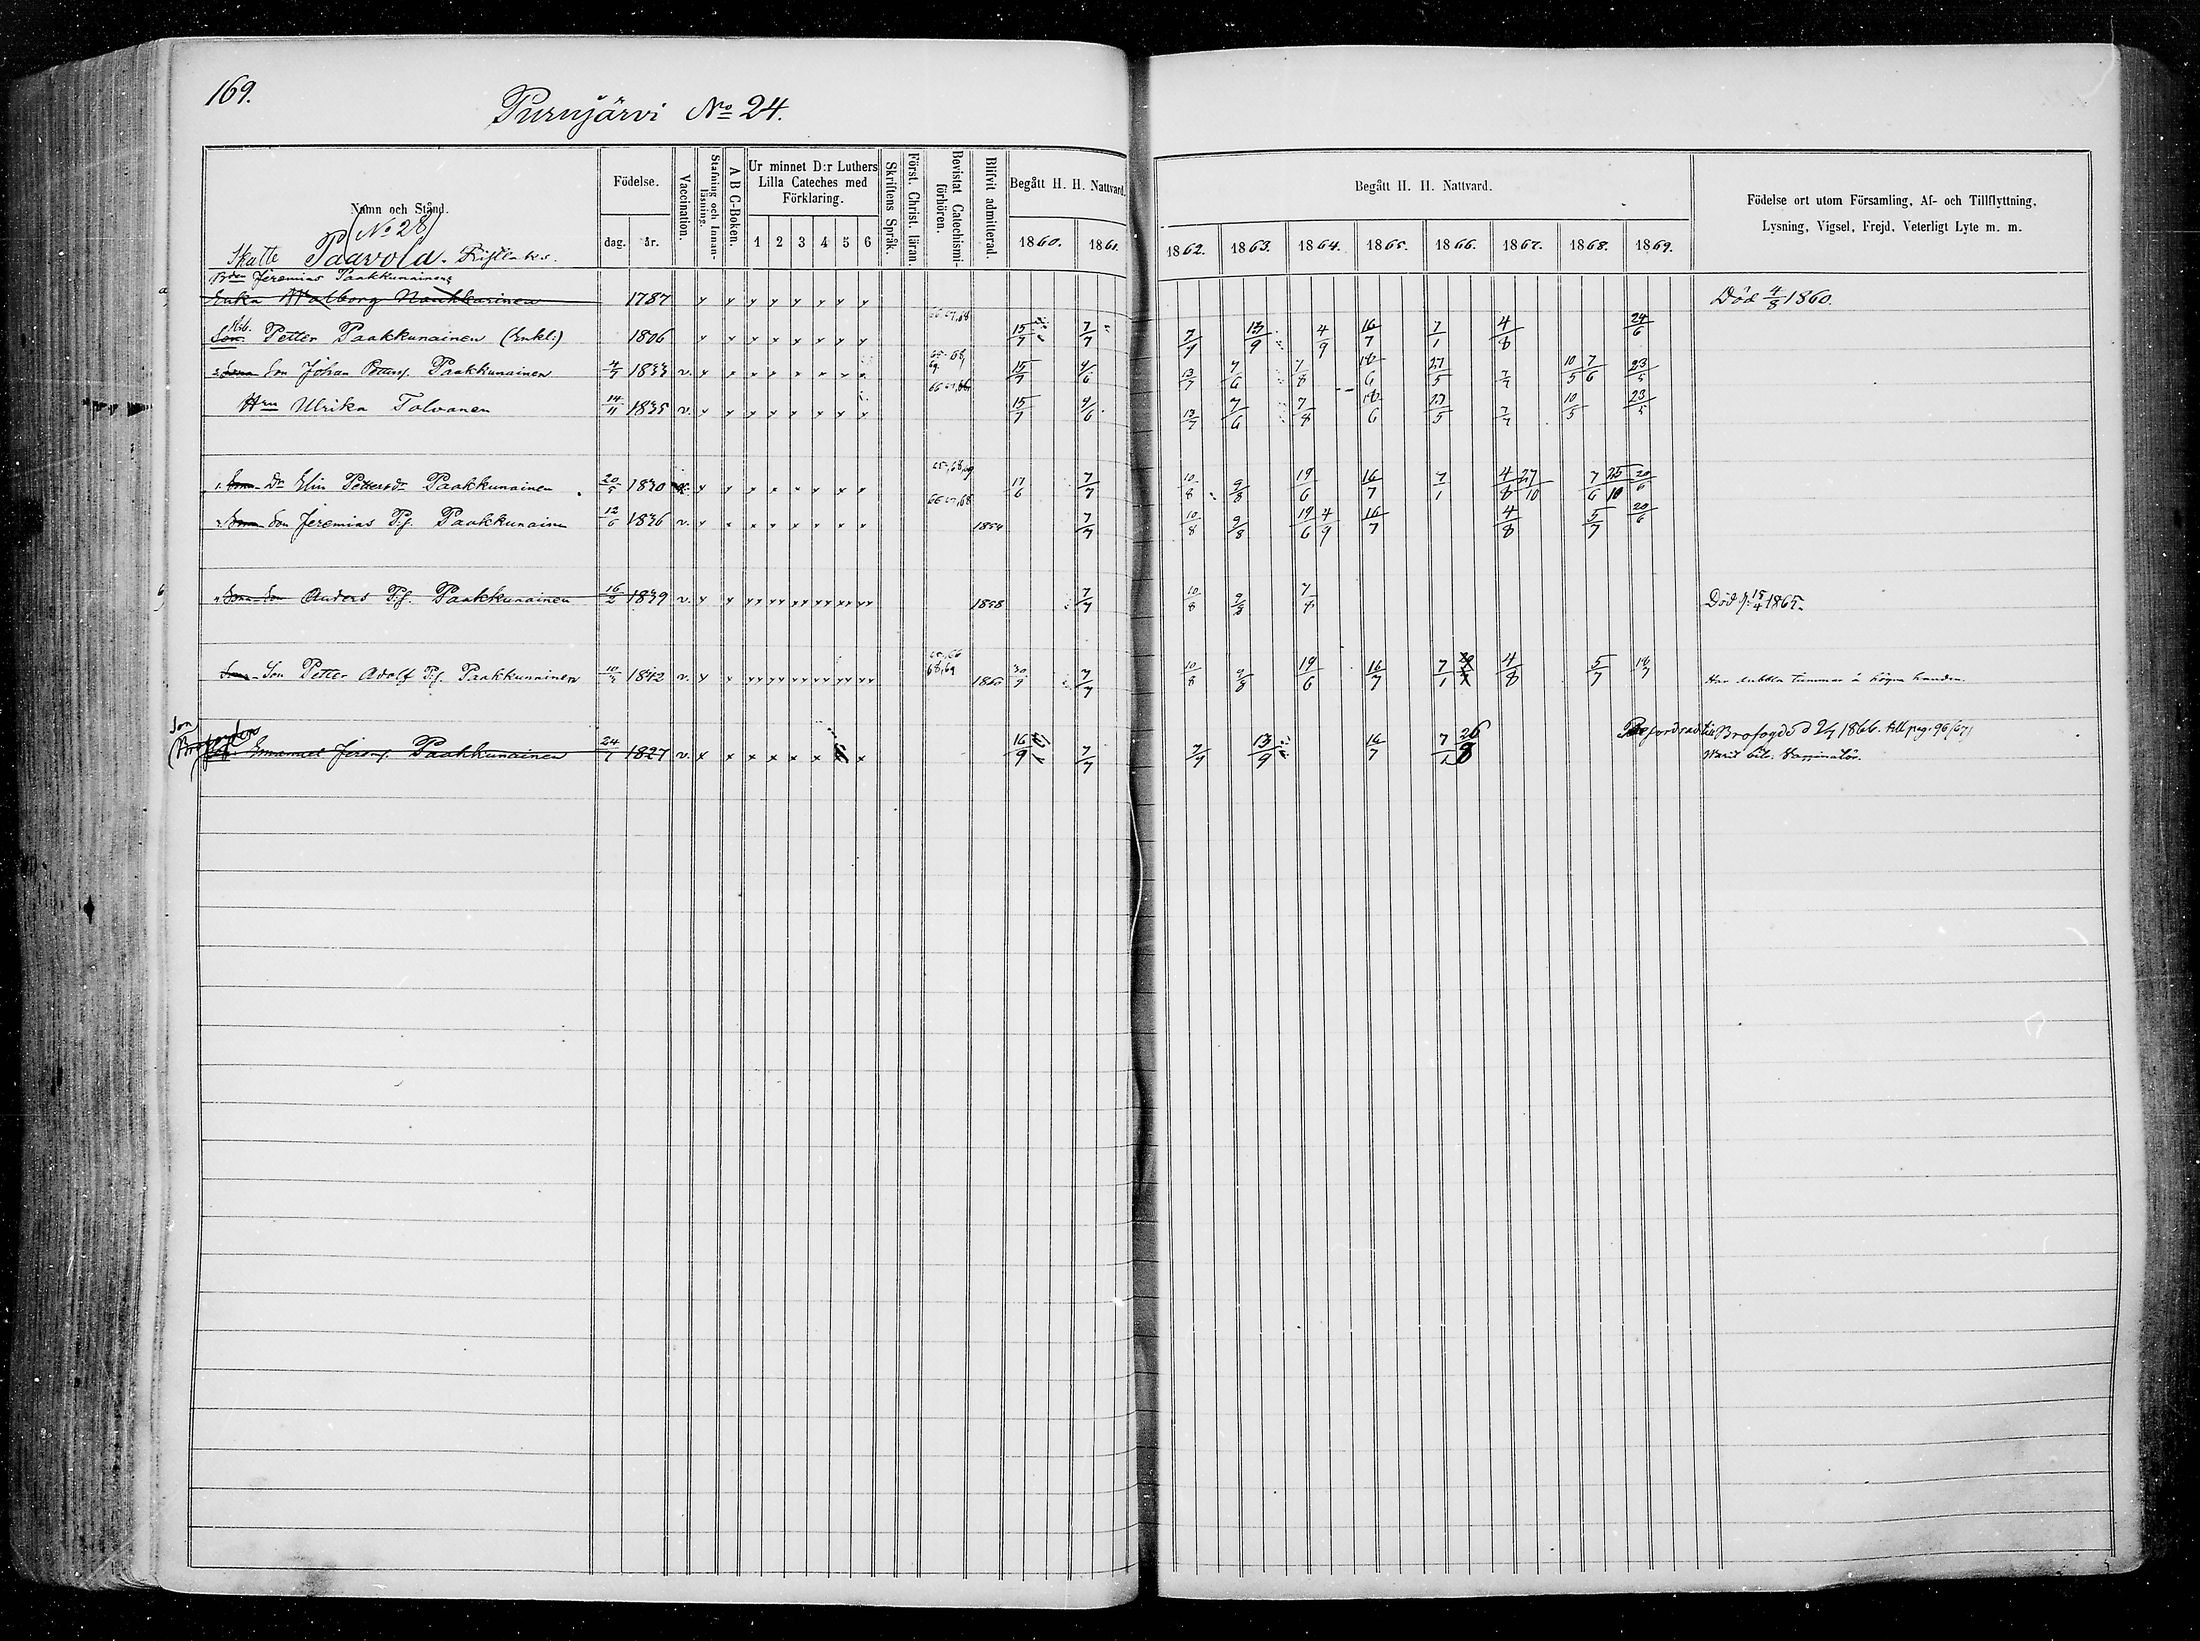 169.
Purnjärvi No 24.
Namn och Stånd.
Födelse.
dag. år.
Vaccination.
Stafning och Innan-läsning.
A B C-Boken.
Ur minnet D:r Luthers Lilla Cateches med Förklaring.
1 2 3 4 5 6
Skriftens Språk.
Först. Christ. läran.
Bevistat Catechismi-förhören.
Blifvit admitterad.
Begått H. H. Nattvard.
1860. 1861.
Begått H. H. Nattvard.
1862. 1863. 1864. 1865. 1866. 1867. 1868. 1869.
Födelse ort utom Församling, Af- och Tillflyttning,
Lysning, Vigsel, Frejd, Veterligt Lyte m. m.
(No 28)
Skatte Paavola.
Bden Jeremias Paakkunainens
Enka Walborg Naukkarinen 1787 Död 4/8 1860.
Son Petter Paakkunainen (Enkl:) 1806 15/7 7/7 7/9 13/9 4/9 16/7 7/1 4/8 24/6
Son Johan Petters. Paakkunainen 4/7 1833 v. 15/7 9/6 13/7 7/6 7/8 18/6 27/5 7/7 10/5 7/6 23/5
Hru Ulrika Tolvanen 14/11 1835 v. 15/7 9/6 13/7 7/6 7/8 18/6 27/5 7/7 10/5 23/5
Dr Elin Pettersdr Paakkunainen 20/5 1830 17/6 7/7 10/8 9/8 19/6 16/7 7/1 4/8 27/10 7/6 25/10 20/6
Son Jeremias P.s. Paakkunainen 12/6 1836 v. 1854 7/7 10/8 9/8 19/6 4/9 16/7 4/8 5/7 20/6
Son Anders P.s. Paakkunainen 16/2 1839 v. 1858 7/7 10/8 9/8 7/8 Död 15/4 1865.
Son Petter Adolf P.s. Paakkunainen 10/7 1842 v. 30/7 7/7 10/8 9/8 19/6 16/7 7/1 4/8 5/7 18/7 Har dubbla tummar å högra handen.
Son
Emanuel Jerem. Paakkunainen 24/7 1827 v. 16/9 7/7 7/9 13/9 16/7 7/1 26/8 Befordrad till Brofogde d 2/7 1866. till pag. 96/671
Warit bitr. Vaccinatör.